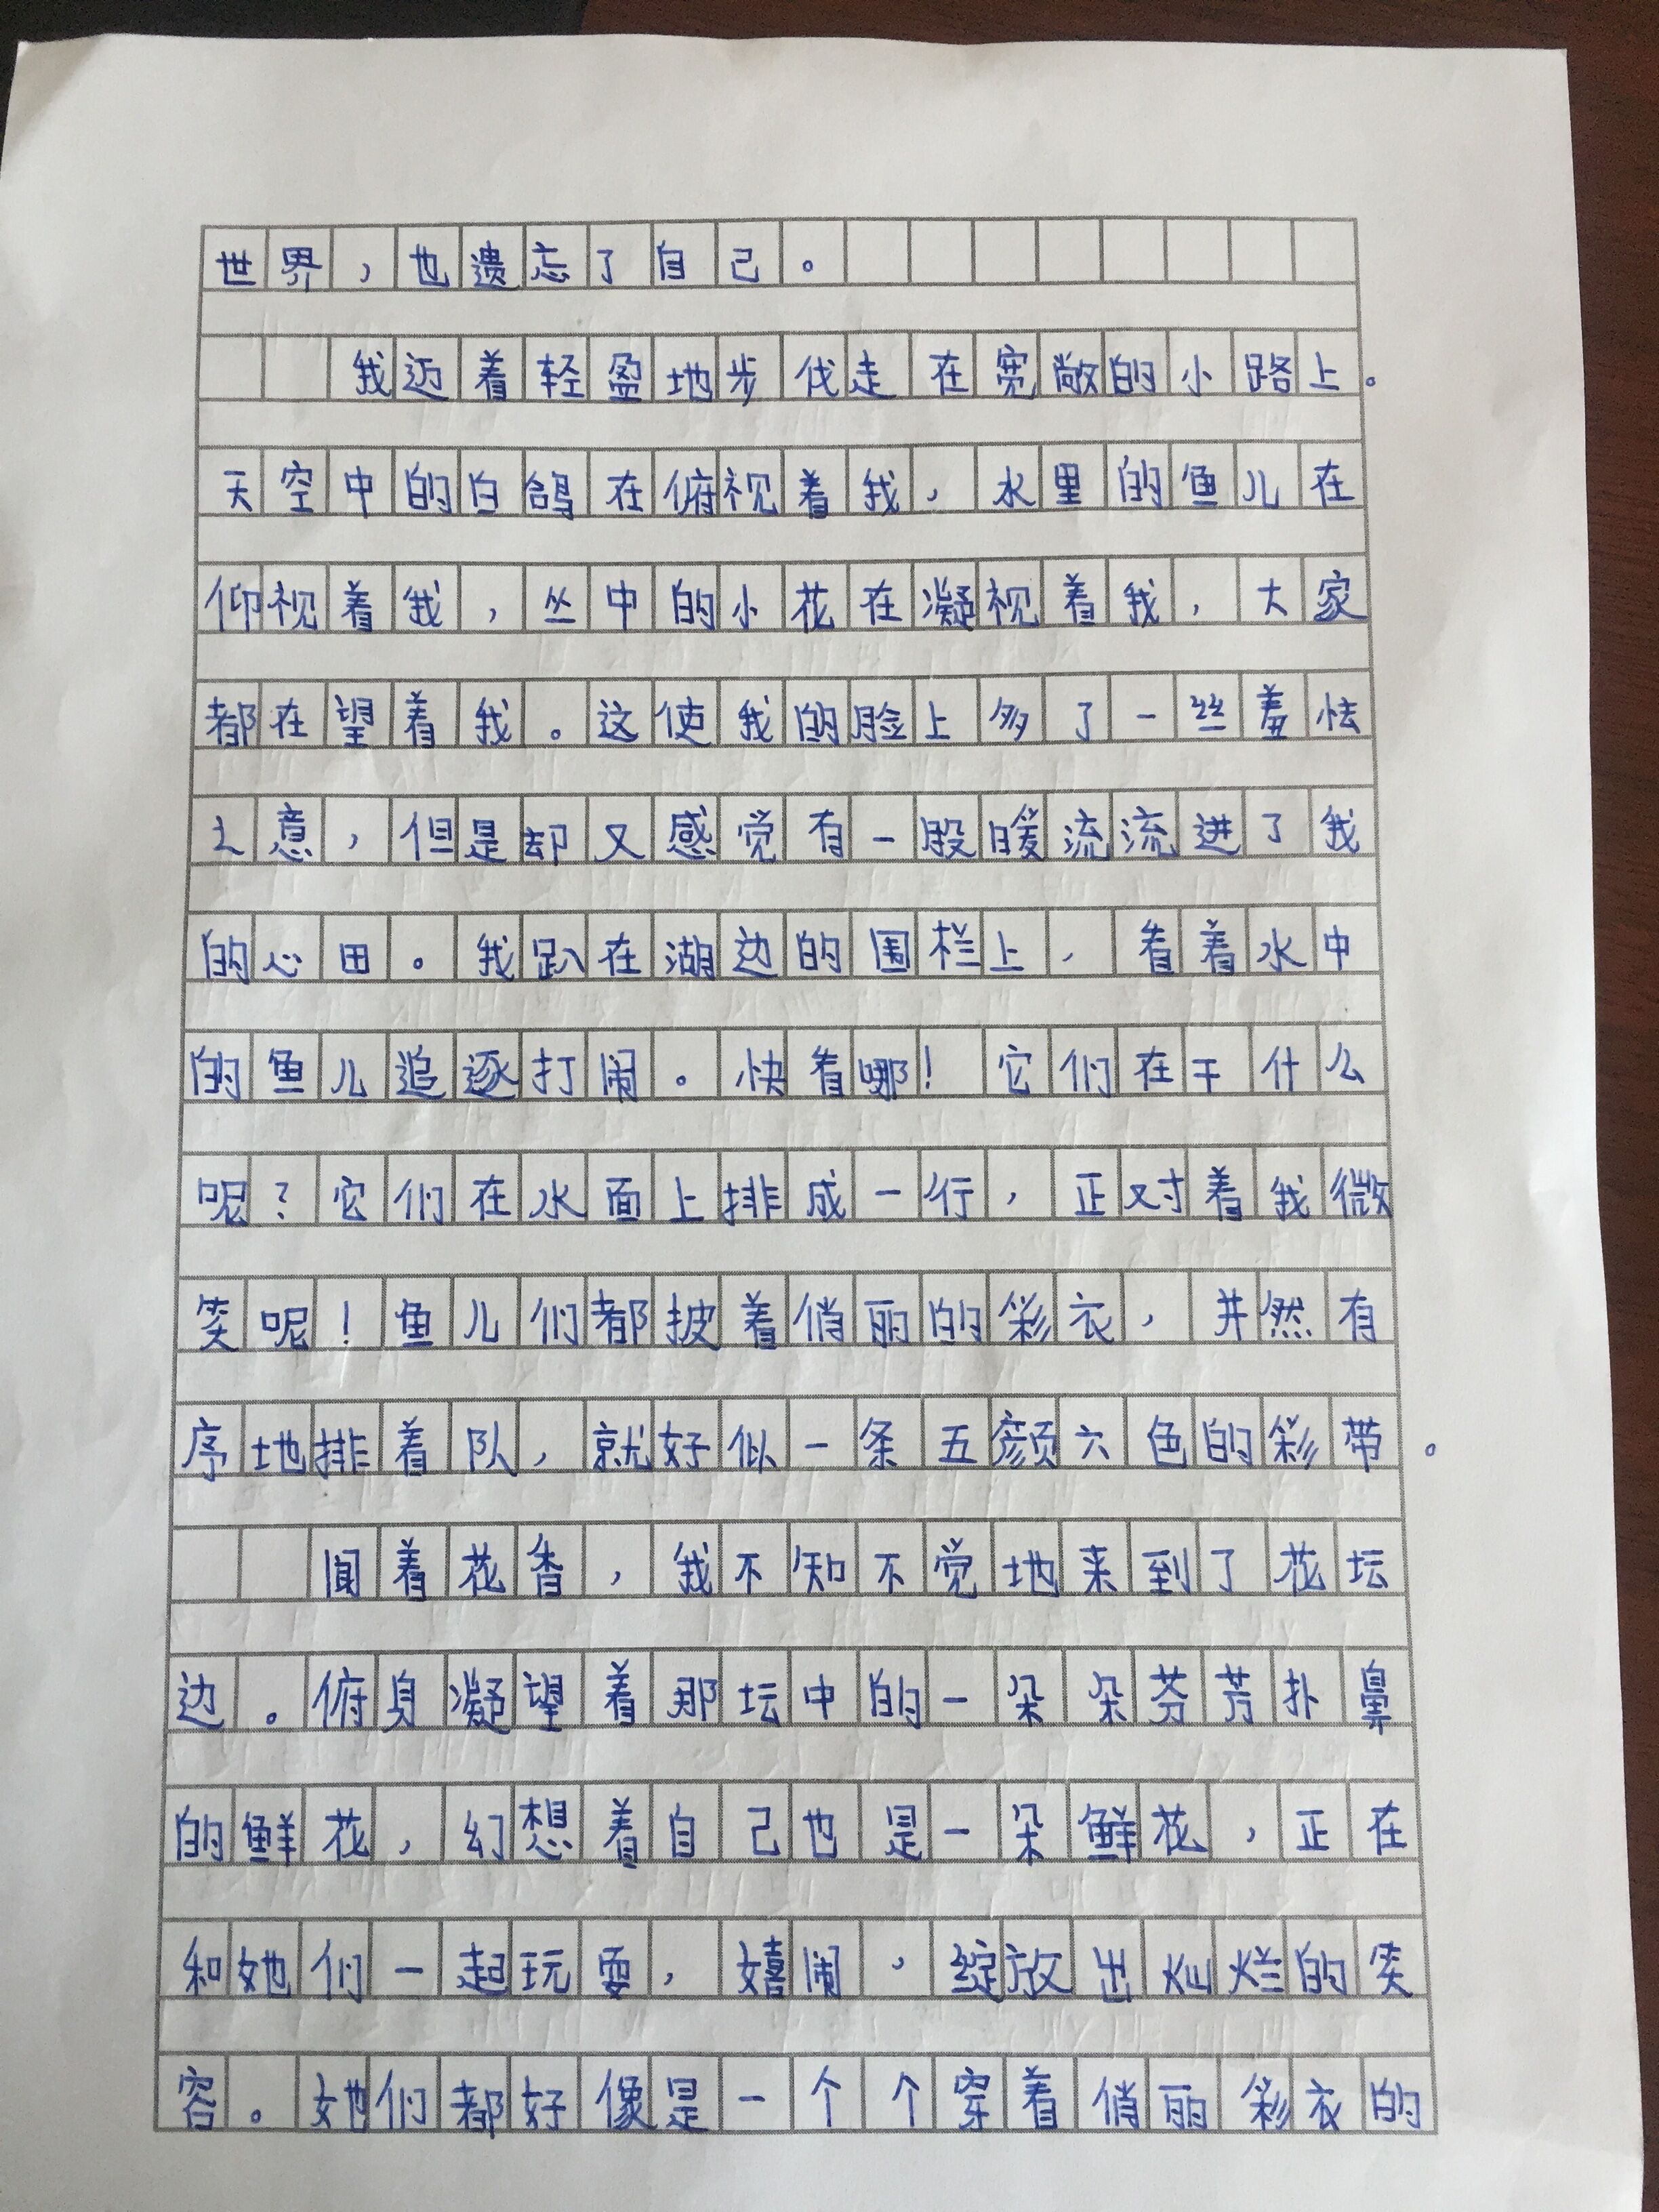 世界，也遗忘了自己。
我迈着轻盈地步伐走在宽敞的小路上。
天空中的白鸽在俯视着我，水里的鱼儿在
仰视着我，丛中的小花在凝视着我，大家
都在望着我。这使我的脸上多了一丝羞怯
之意，但是却又感觉有一股暖流流进了我
的心田。我趴在湖边的围栏上，看着水中
的鱼儿追逐打闹。快看哪！它们在干什么
呢？它们在水面上排成一行，正对着我微
笑呢！鱼儿们都披着俏丽的彩衣，井然有
序地排着队，就好似一条五颜六色的彩带。
闻着花香，我不知不觉地来到了花坛
边。俯身凝望着那坛中的一朵朵芬芳扑鼻
的鲜花，幻想着自己也是一朵鲜花，正在
和她们一起玩耍，嬉闹，绽放出灿烂的笑
容。她们都好像是一个个穿着俏丽彩衣的